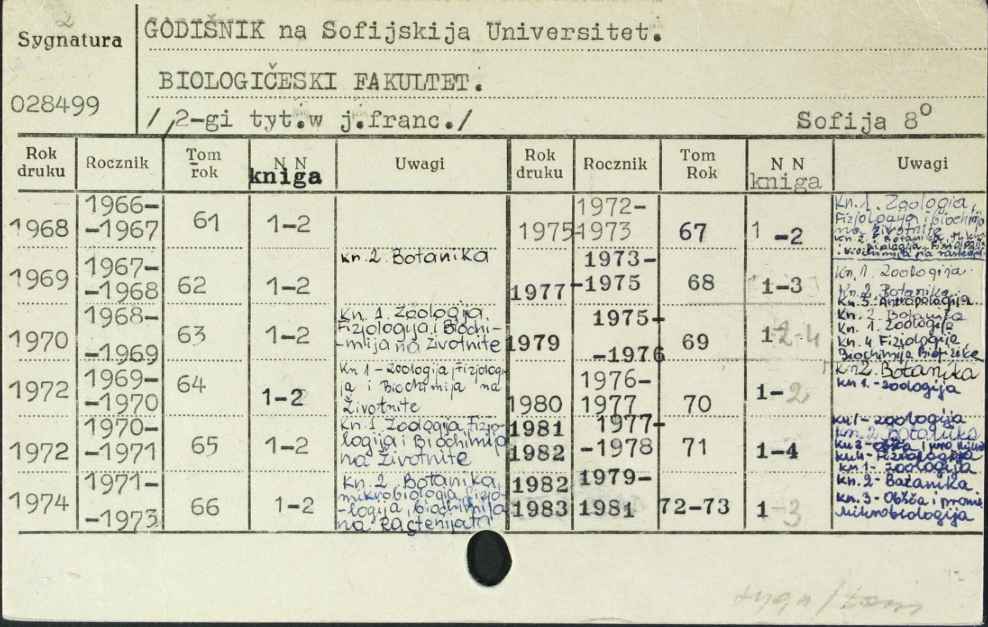 Sygnatura
GODIŠNIK na Sofijskija Universitet.
BIOLOGIČESKI FAKULTET.
028499
/ 2-gi tyt.w j.franc./ Sofija 8°
Rok druku Rocznik Tom rok N N kniga Uwagi Rok druku Rocznik Tom Rok N N kniga Uwagi
1968 1966--1967 61 1-2
1969 1967--1968 62 1-2 Kn. 2. Botanika
1970 1968--1969 63 1-2 Kn. 1. Zoologija.
Fizjologija i Biochi-
-mija na Životnite
1972 1969--1970 64 1-2 Kn 1 - Zoologija Fizjolog
ja i Biochimija na
Životnite
1972 1970--1971 65 1-2 Kn. 1 Zoologija Fizjo-
logija i Biochimija
na Životnite
1974 1971--1973 66 1-2 Kn. 2. Botanika,
mikrobiologia, fizjo-
-logija, biochimija
na Rastenijata
1975 1972-1973 67 1-2 Kn. 1. Zoologija,
Fizjologija i biochimija
na životnite
Kn. 2. Botanika
1977 1973--1975 68 1-3 Kn. 1. Zoologija.
Kn. 2. Botanika
Kn. 3. Antropologija
1979 1975--1976 69 1-2-4 Kn. 2 Botanika
Kn. 1. Zoologija
Kn. 4 Fizjologija
Biochimija Biofizike
1980 1976-1977 70 1-2 Kn 2. Botanika
Kn 1. - zoologija
1981 1982 1977--1978 71 1-4 Kn 1 - zoologija
Kn. 2 Botanika
Kn 4 - Fizjologija
1982 1983 1979-1981 72-73 1-3 Kn 1 - zoologija
Kn. 2 - Botanika
Kn. 3 - Obšča i prom
Mikrobiologija